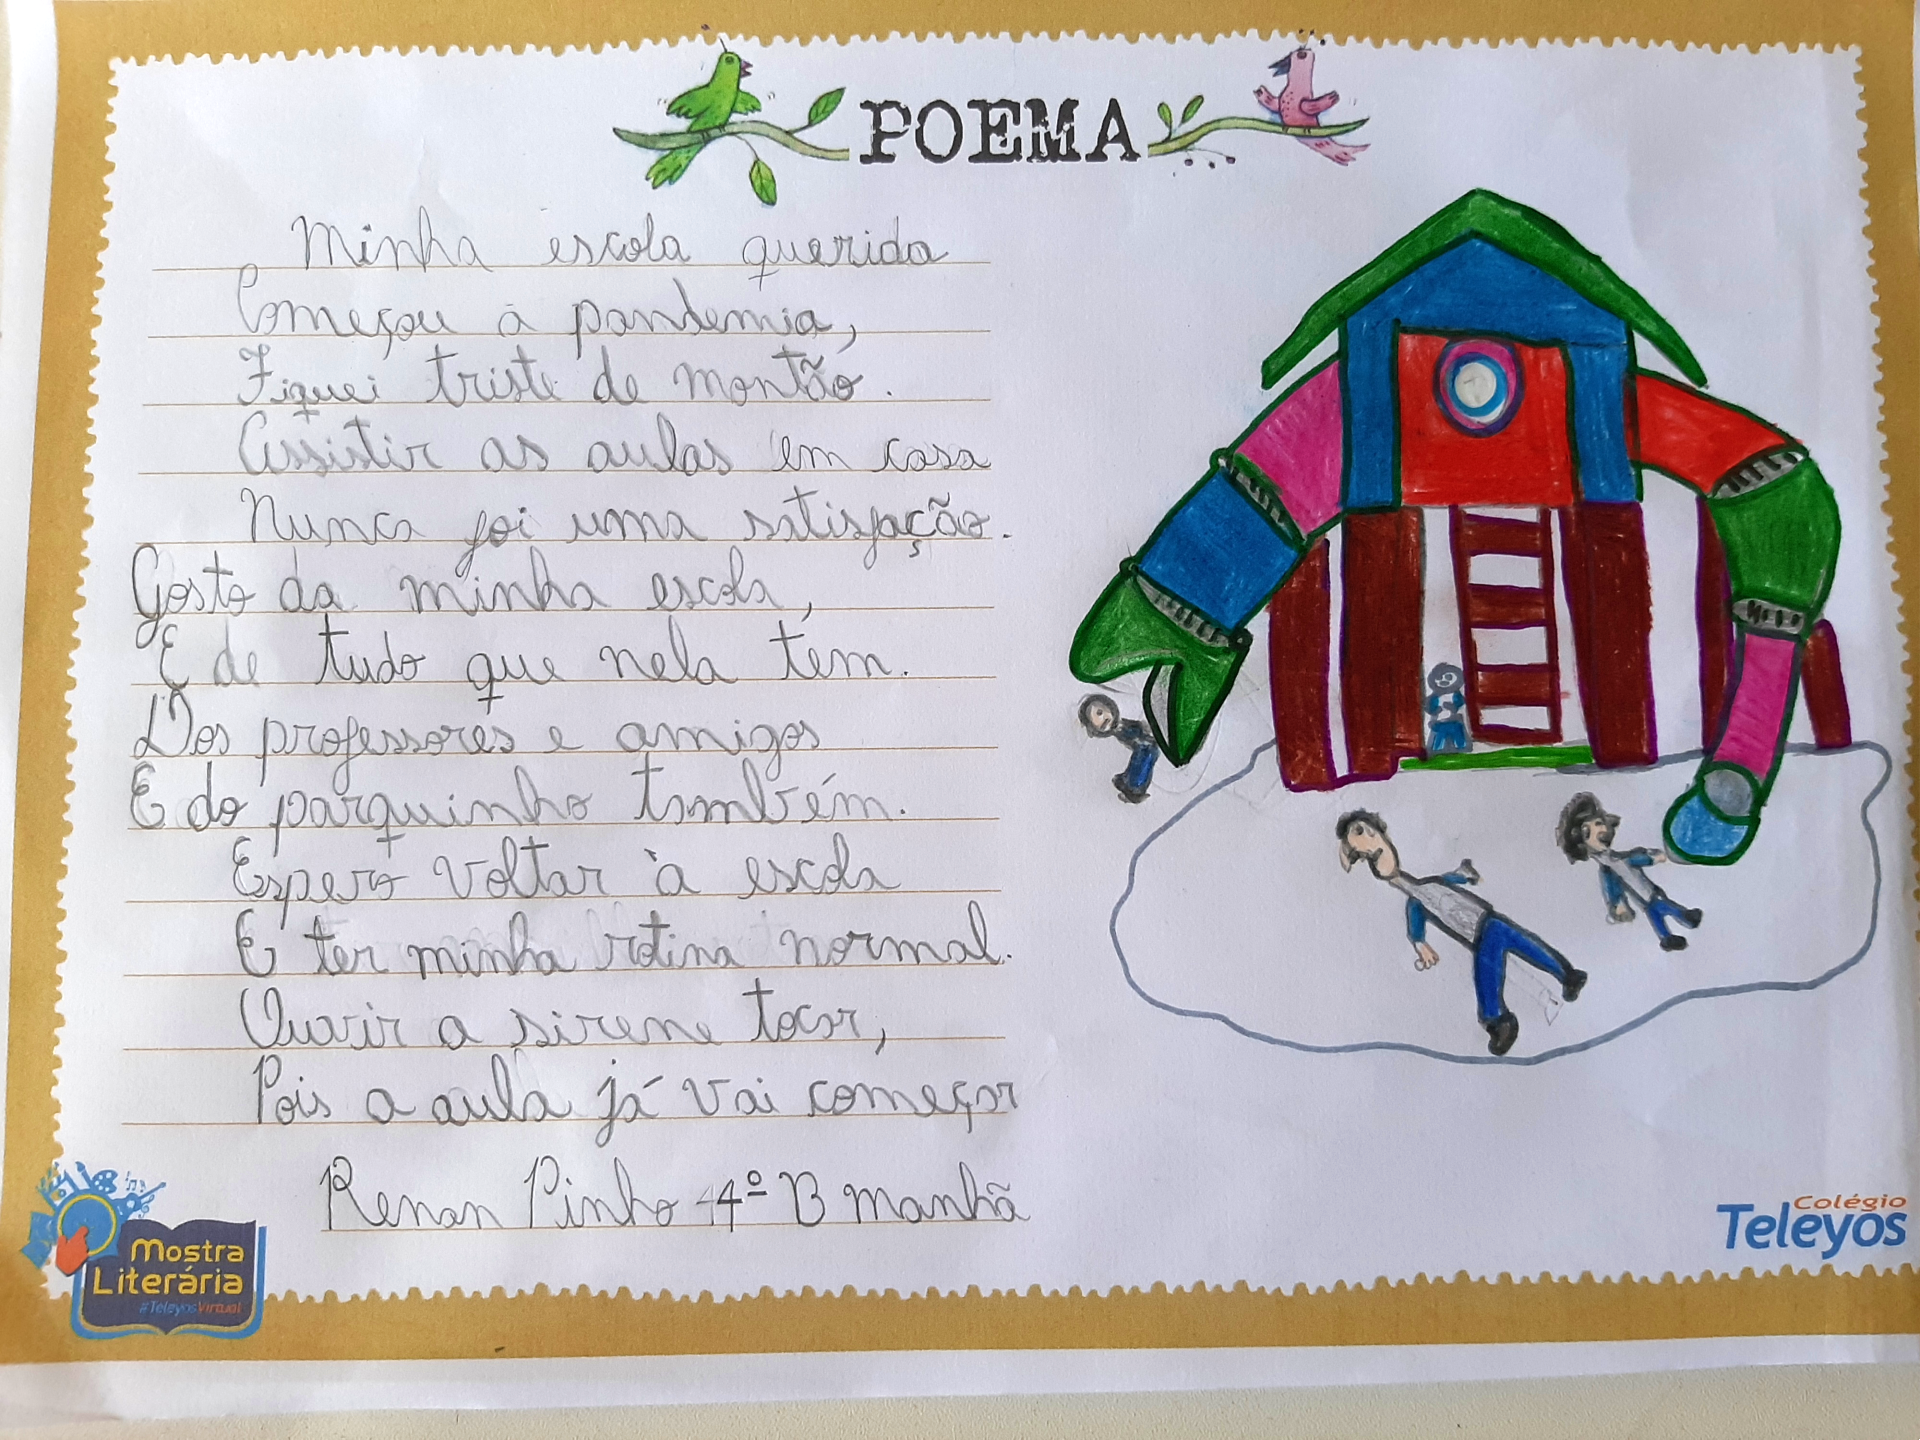 POEMA
Minha escola querida
Começou a pandemia,
Fiquei triste de montão.
Assistir as aulas em casa
Nunca foi uma satisfação.
Gosto da minha escola,
E de tudo que nela tem.
Dos professores e amigos
E do parquinho também.
Espero voltar à escola
E ter minha rotina normal.
Ouvir a sirene tocar,
Pois a aula já vai começar
Renan Pinho 4º B manhã
Mostra
Literária
#TeleyosVirtual
Colégio
Teleyos